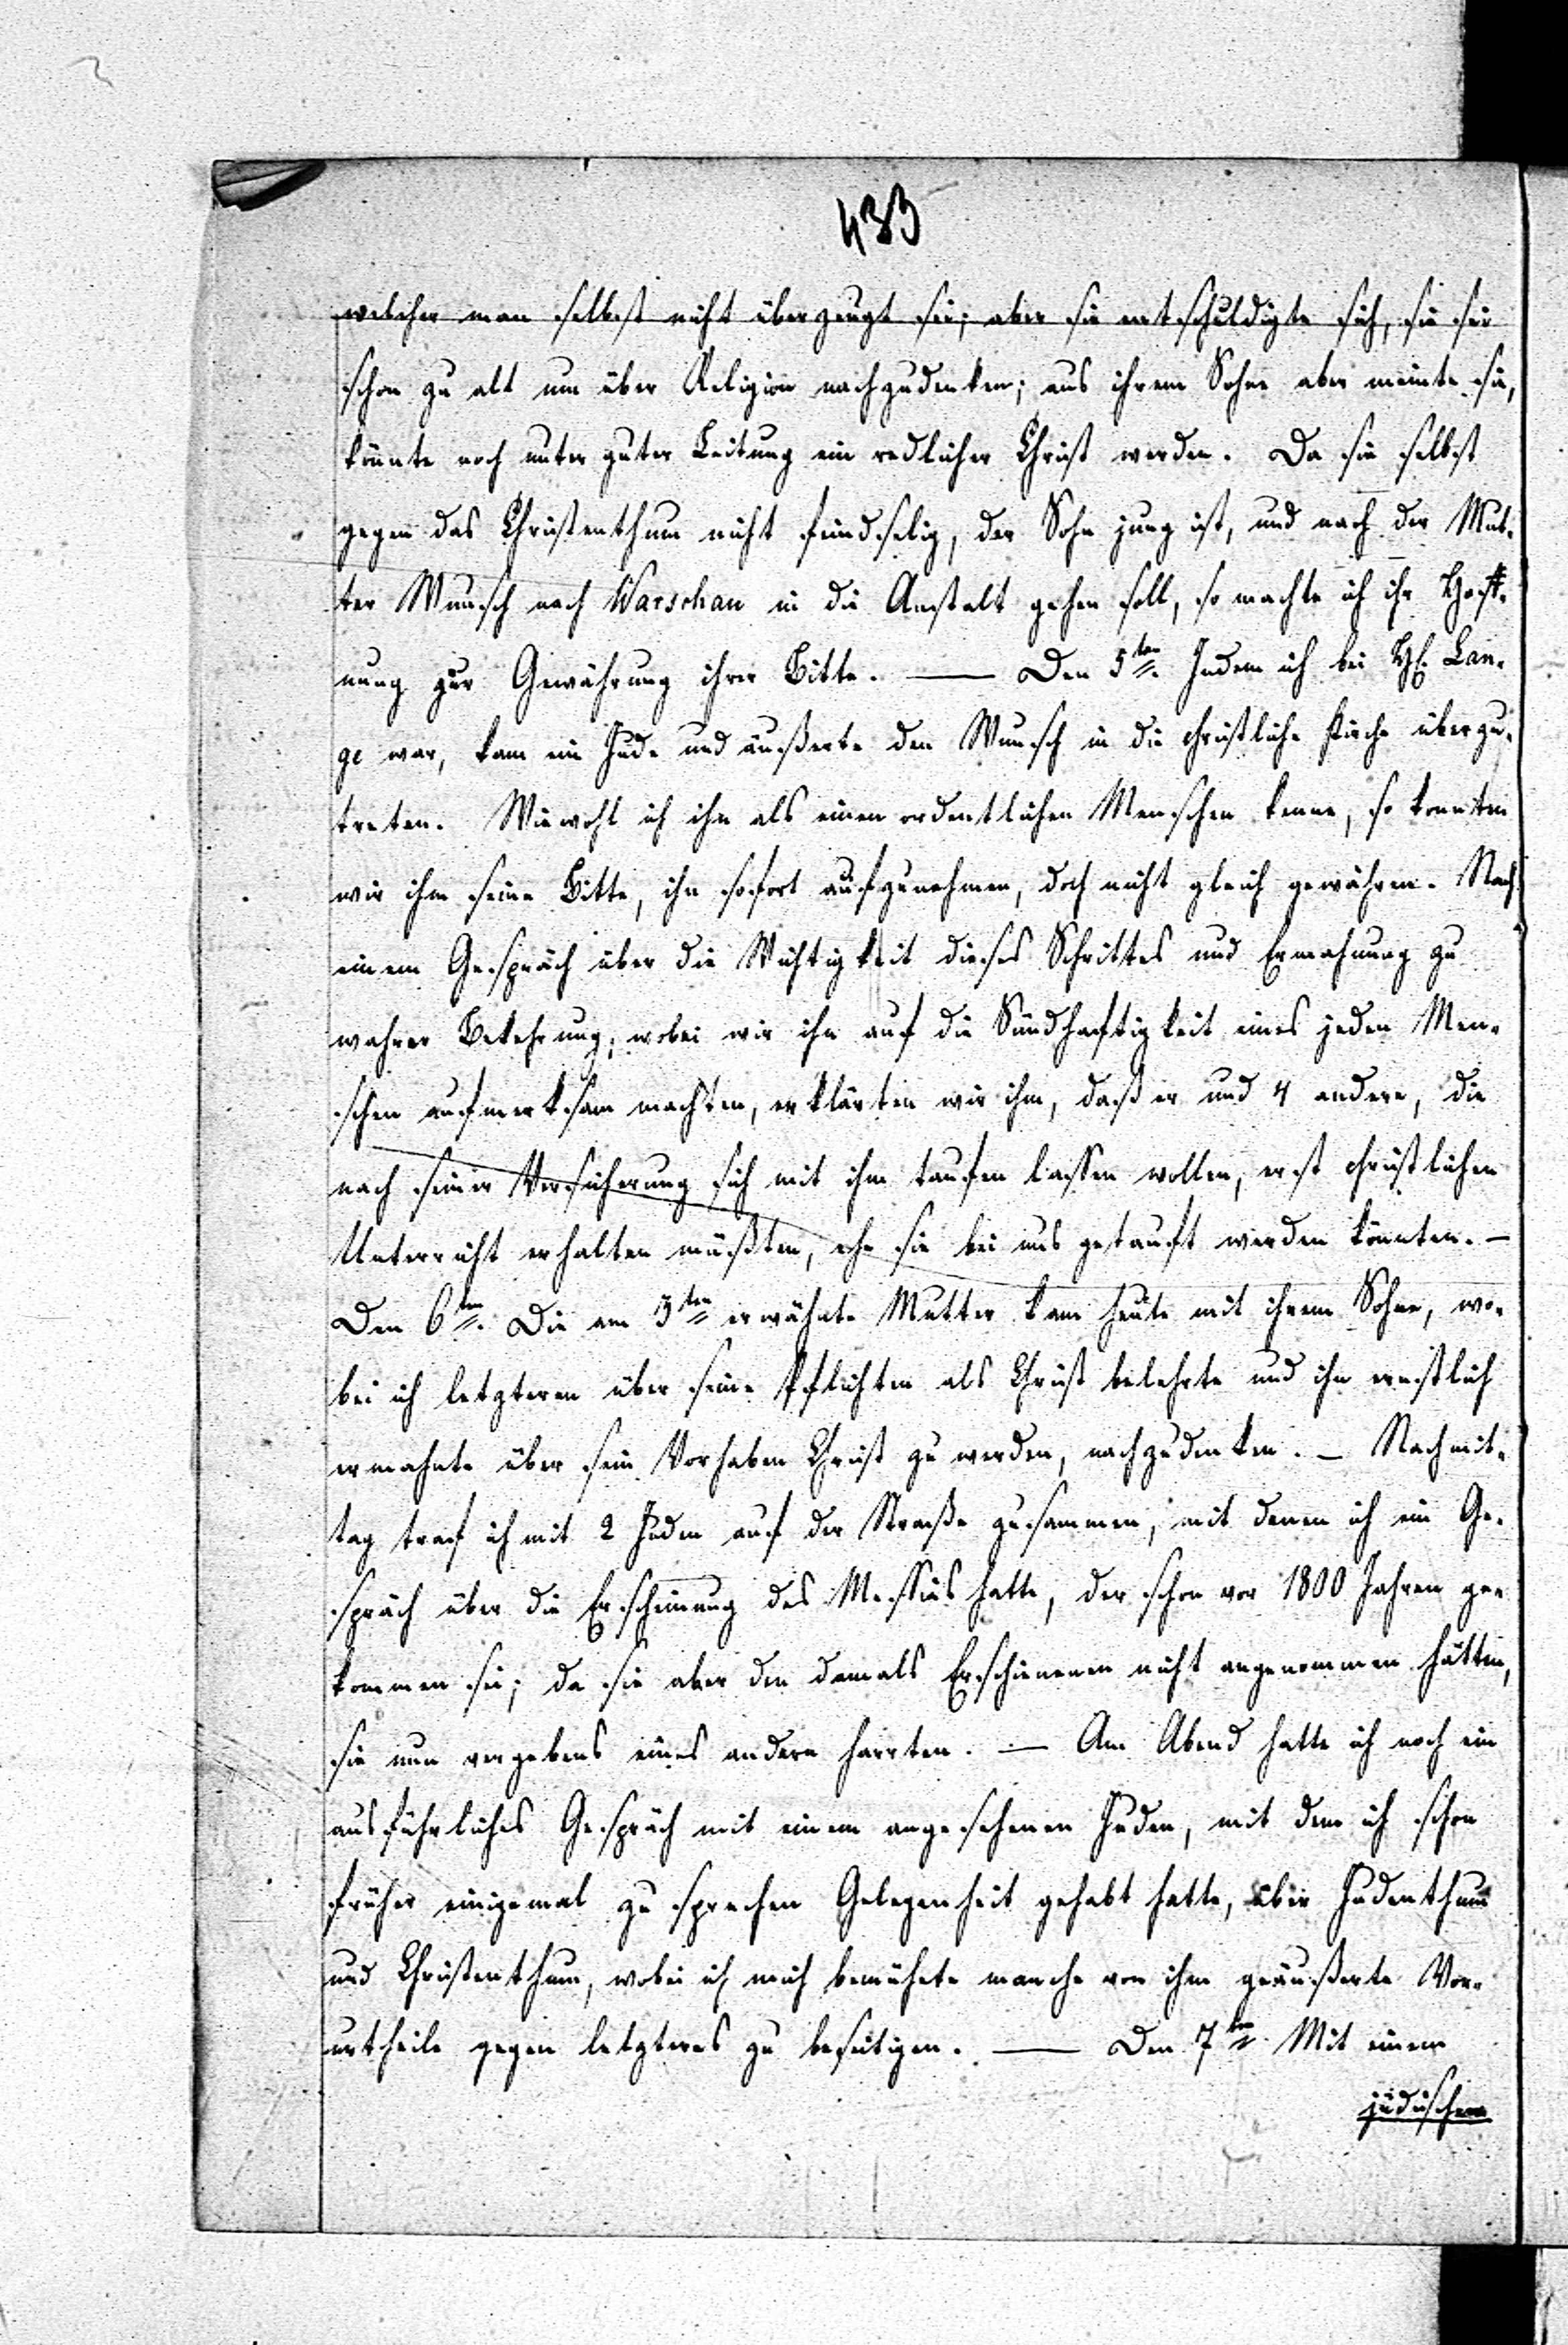 433
welcher man selbst nicht überzeugt sei; aber sie entschuldigte sich, sie sei
schon zu alt um über Religion nachzudenken; aus ihrem Sohne aber meinte sie,
könnte noch unter guter Leitung ein redlicher Christ werden. Da sie selbst
gegen das Christenthum nicht feindselig, der Sohn jung ist, und nach der Mut-
ter Wunsch nach Warschau in die Anstalt gehen soll, so machte ich ihr Hoff-
nung zur Gewährung ihrer Bitte. — Den 5ten. Indem ich bei H. Lan-
ge war, kam ein Jude und äußerte den Wunsch in die christliche Kirche überzu-
treten. Wiewohl ich ihn als einen ordentlichen Menschen kenne, so konnten
wir ihm seine Bitte, ihn sofort aufzunehmen, doch nicht gleich gewähren. Nach
einem Gespräch über die Wichtigkeit dieses Schrittes und Ermahnung zu
wahrer Bekehrung, wobei wir ihn auf die Sündhaftigkeit eines jeden Men-
schen aufmerksam machten, erklärten wir ihm, daß er und 4 andere, die
nach seiner Versicherung sich mit ihm taufen lassen wollen, erst christlichen
Unterricht erhalten müßten, ehe sie bei uns getauft werden könnten. –
Den 6ten. Die am 3ten erwähnte Mutter kam heute mit ihrem Sohne, wo-
bei ich letzteren über seine Pflichten als Christ belehrte und ihn ernstlich
ermahnte über sein Vorhaben Christ zu werden, nachzudenken. – Nachmit-
tag traf ich mit 2 Juden auf der Straße zusammen, mit denen ich ein Ge-
spräch über die Erscheinung des Messias hatte, der schon vor 1800 Jahren ge-
kommen sei; da sie aber den damals Erschienenen nicht angenommen hätten,
sie nun vergebens eines andern harrten. — Am Abend hatte ich noch ein
ausführliches Gespräch mit einem angesehenen Juden, mit dem ich schon
früher einigemal zu sprechen Gelegenheit gehabt hatte, über Judenthum
und Christenthum, wobei ich mich bemühete manche von ihm geäußerte Vor-
urtheile gegen letzteres zu beseitigen. — Den 7ten. Mit einem
jüdischen